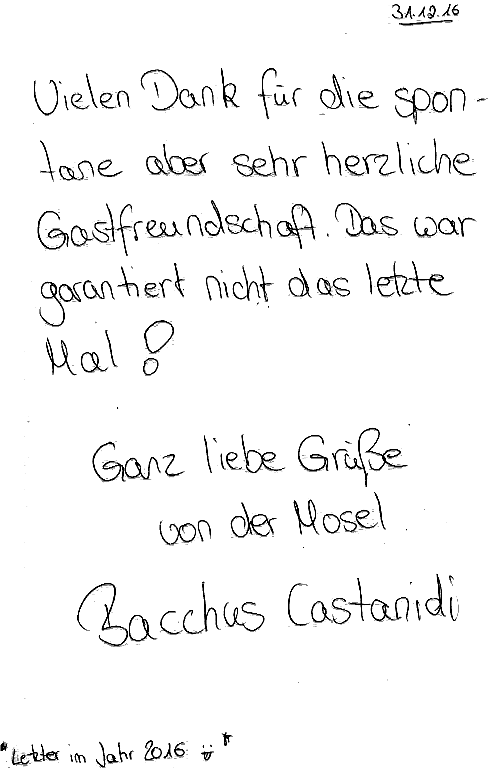 31.12.16
Vielen Dank für die spon-
tane aber sehr herzliche
Gastfreundschaft. Das war
garantiert nicht das letzte
Mal!
Ganz liebe Grüße
von der Mosel
Bacchus Castanidi
*Letzter im Jahr 2016 ü*